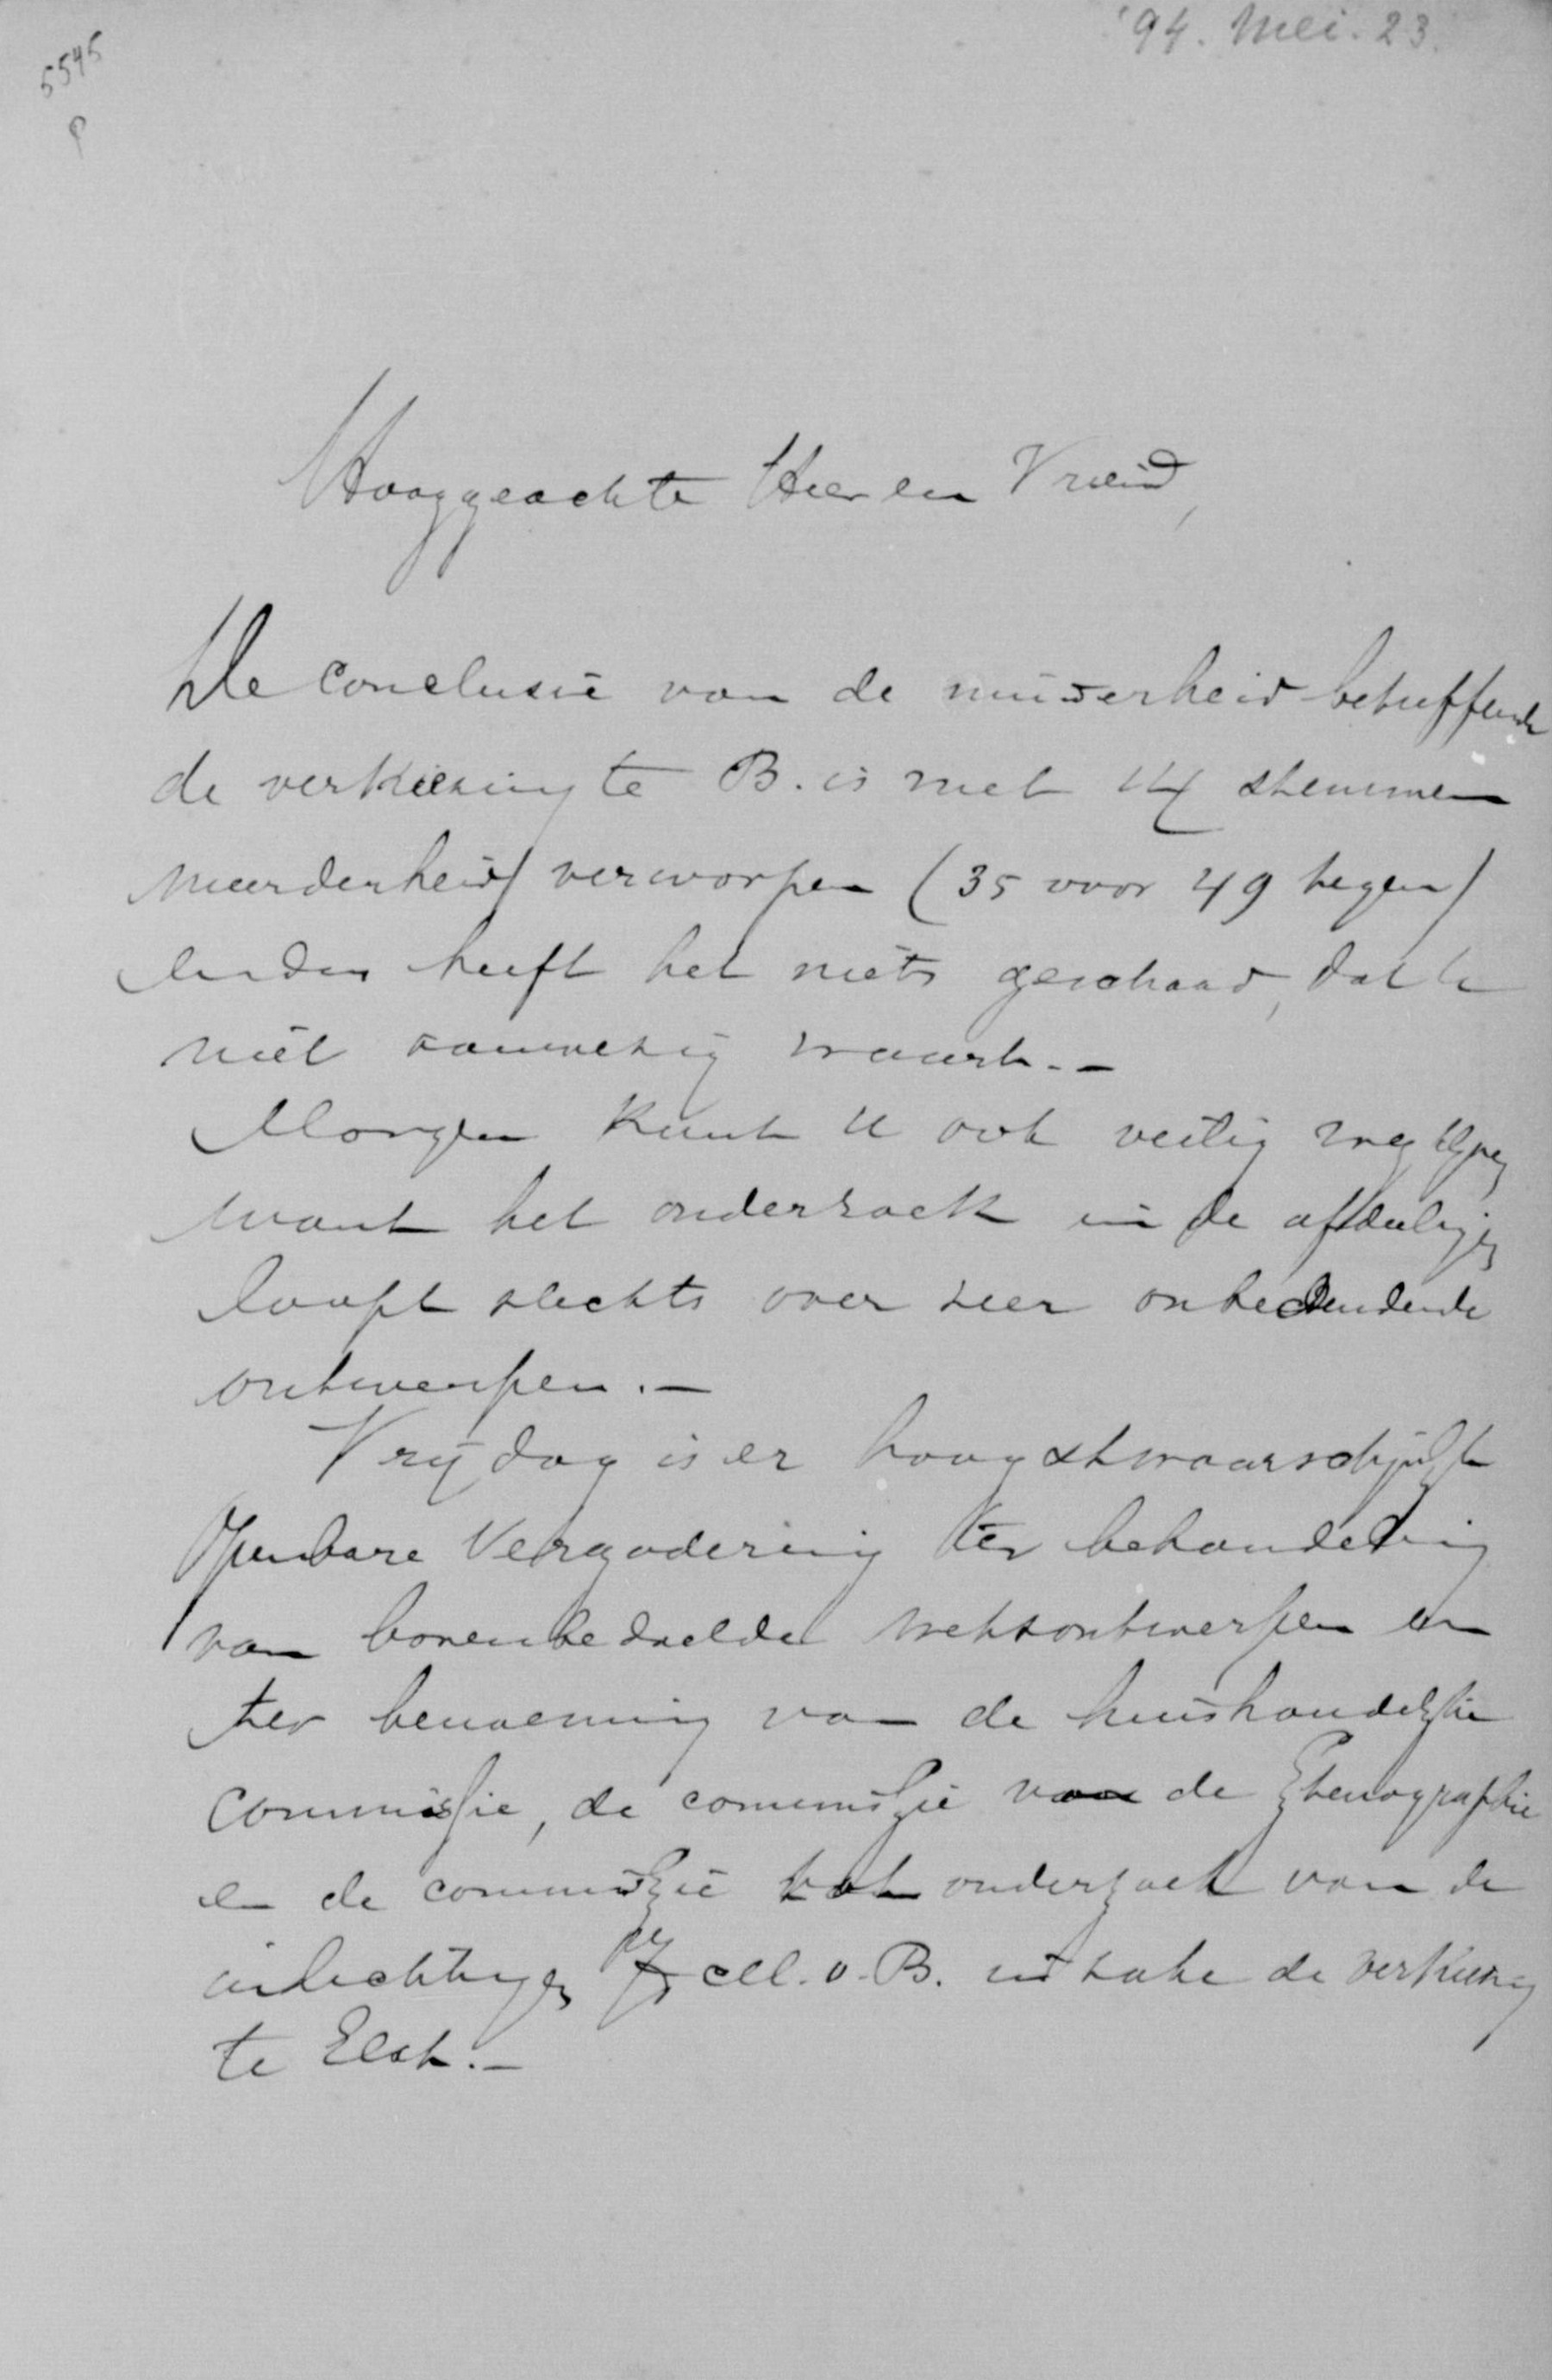 '94. Mei. 23.
5545
P
Hooggeachte Heer en Vriend,
De conclusie van de minderheid betreffende
de verkiezing te B. is met 14 stemmen
meerderheid verworpen (35 voor 49 tegen)
heeft het niets geschaad, dat U
niet aanwezig waart. -
Morgen kunt U ook veilig wegblijven
want het onderzoek in de afdeelingen
loopt slechts over zeer onbeduidende
ontwerpen. -
Vrijdag is er hoogstwaarschijnlijk
Openbare Vergadering ter behandeling
van bovenbedoelde wetsontwerpen en
ter benoeming van de huishoudelijke
Commissie, de commissie voor de Stenographie
en de commissie tot onderzoek van de
inlichtingen v. B. in zake de verkiezing
te Elst. -